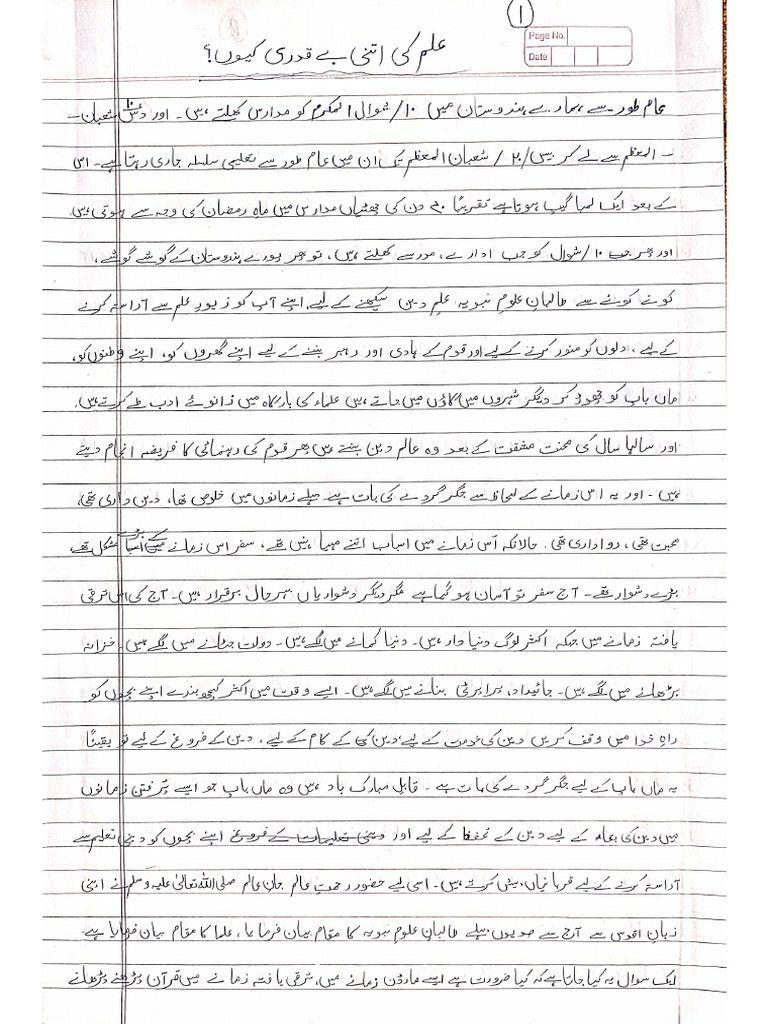 ۱
Page No.
Date
علم کی اتنی بے قدری کیوں؟
عام طور سے ہمارے ہندوستان میں ۱۰/ شوال المکرم کو مدارس کھلتے ہیں۔ اور دس شعبان
المعظم سے لے کر بیس/۲۰/ شعبان المعظم تک ان میں عام طور سے تعلیمی سلسلہ جاری رہتا ہے۔ اس
کے بعد ایک لمبا گیپ ہوتا ہے تقریبًا دن کی چھٹیاں مدارس میں ماہِ رمضان کی وجہ سے ہوتی ہیں۔
اور پھر جب ۱۰/ شوال کو جب ادارے، مدرسے کھلتے ہیں، تو پھر پورے ہندوستان کے گوشے گوشے،
کونے کونے سے طالبانِ علومِ نبویہ علمِ دین سیکھنے کے لیے اپنے آپ کو زیورِ علم سے آراستہ کرنے
کے لیے، دلوں کو منور کرنے کے لیے اور قوم کے ہادی اور رہبر بننے کے لیے اپنے گھروں کو، اپنے وطنوں کو،
ماں باپ کو چھوڑ کر دیگر شہروں میں گاؤں میں جاتے ہیں علماء کی بارگاہ میں زانوئے ادب طے کرتے ہیں۔
اور سالہا سال کی محنت مشقت کے بعد وہ عالمِ دین بنتے ہیں پھر قوم کی رہنمائی کا فریضہ انجام دیتے
ہیں۔ اور یہ اس زمانے کے لحاظ سے جگر گردے کی بات ہے پہلے زمانوں میں خلوص تھا، دین داری تھی،
محبت تھی، رواداری تھی۔ حالانکہ اُس زمانے میں اسباب اتنے مہیا نہیں تھے، سفر اس زمانے میں بڑے مشکل تھے،
بڑے دشوار تھے۔ آج سفر تو آسان ہو گیا ہے مگر دیگر دشواریاں بہرحال برقرار ہیں۔ آج کی اس ترقی
یافتہ زمانے میں جبکہ اکثر لوگ دنیا دار ہیں۔ دنیا کمانے میں لگے ہیں۔ دولت جٹانے میں لگے ہیں۔ خزانہ
بڑھانے میں لگے ہیں۔ جائیداد، پراپرٹی بنانے میں لگے ہیں۔ ایسے وقت میں اکثر کچھ بندے اپنے بچوں کو
راہِ خدا میں وقف کریں دین کی خدمت کے لیے، دین کے کام کے لیے، دین کے فروغ کے لیے تو یقینًا
یہ ماں باپ کے لیے جگر گردے کی بات ہے۔ قابلِ مبارک باد ہیں وہ ماں باپ جو ایسے پُرفتن زمانوں
میں دین کی بقاء کے لیے دین کے تحفظ کے لیے اور دینی تعلیمات کے فروغ اپنے بچوں کو دینی تعلیم سے
آراستہ کرنے کے لیے قربانیاں پیش کرتے ہیں۔ اسی لیے حضور رحمتِ عالم جانِ عالم صلی اللہ تعالیٰ علیہ وسلم نے اپنی
زبانِ اقدس سے آج سے صدیوں پہلے طالبانِ علومِ نبویہ کا مقام بیان فرمایا، علما کا مقام بیان فرمایا ہے۔
ایک سوال یہ کیا جاتا ہے کہ کیا ضرورت ہے ایسے ماڈرن زمانے میں، ترقی یافتہ زمانے میں قرآن پڑھنے پڑھانے